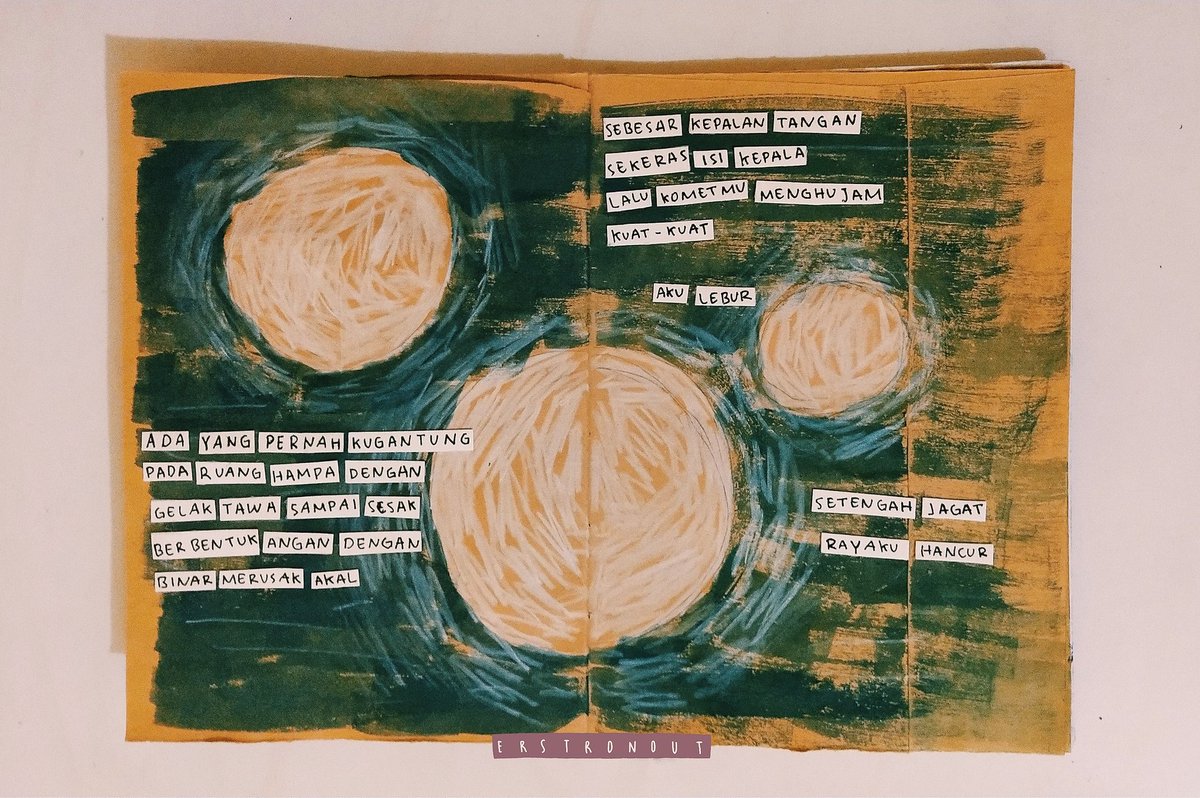 ADA YANG PERNAH KUGANTUNG
PADA RUANG HAMPA DENGAN
GELAK TAWA SAMPAI SESAK
BERBENTUK ANGAN DENGAN
BINAR MERUSAK AKAL
SEBESAR KEPALAN TANGAN
SEKERAS ISI KEPALA
LALU KOMETMU MENGHUJAM
KUAT-KUAT
AKU LEBUR
SETENGAH JAGAT
RAYAKU HANCUR
ERSTRONOUT